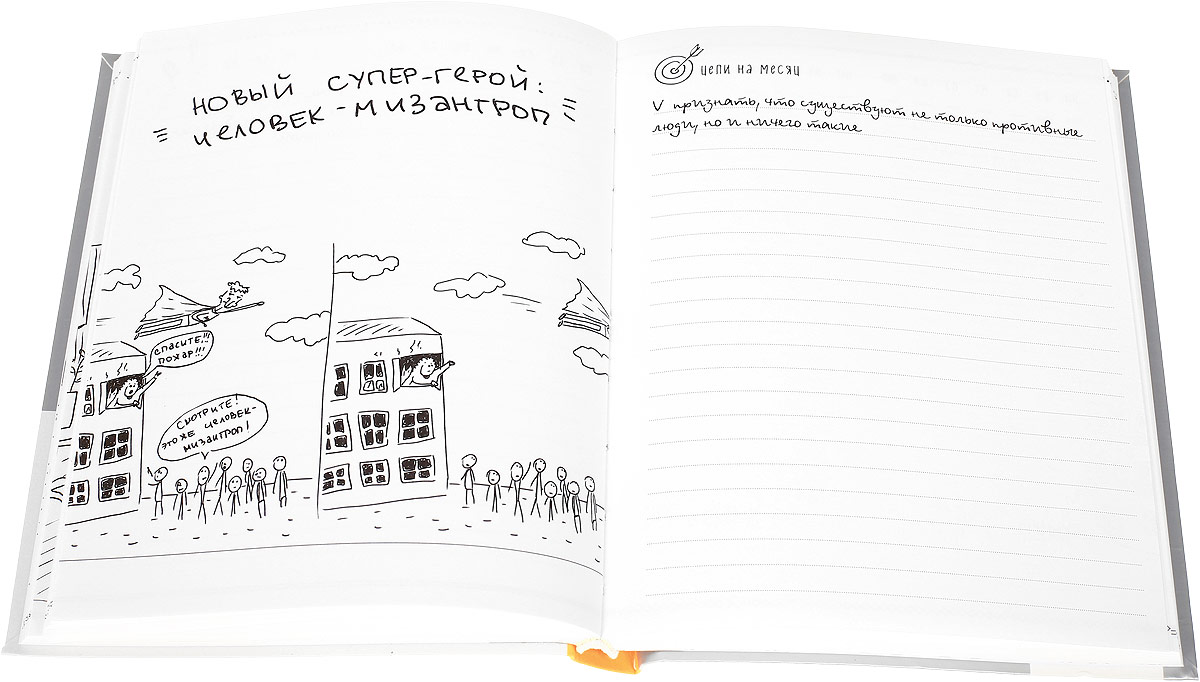 НОВЫЙ СУПЕР-ГЕРОЙ:
ЧЕЛОВЕК-МИЗАНТРОП
СПАСИТЕ!!!
ПОЖАР!!!
СМОТРИТЕ!
ЭТО ЖЕ ЧЕЛОВЕК-
МИЗАНТРОП!
ЦЕЛИ НА МЕСЯЦ
V признать, что существуют не только противные
люди, но и ничего такие